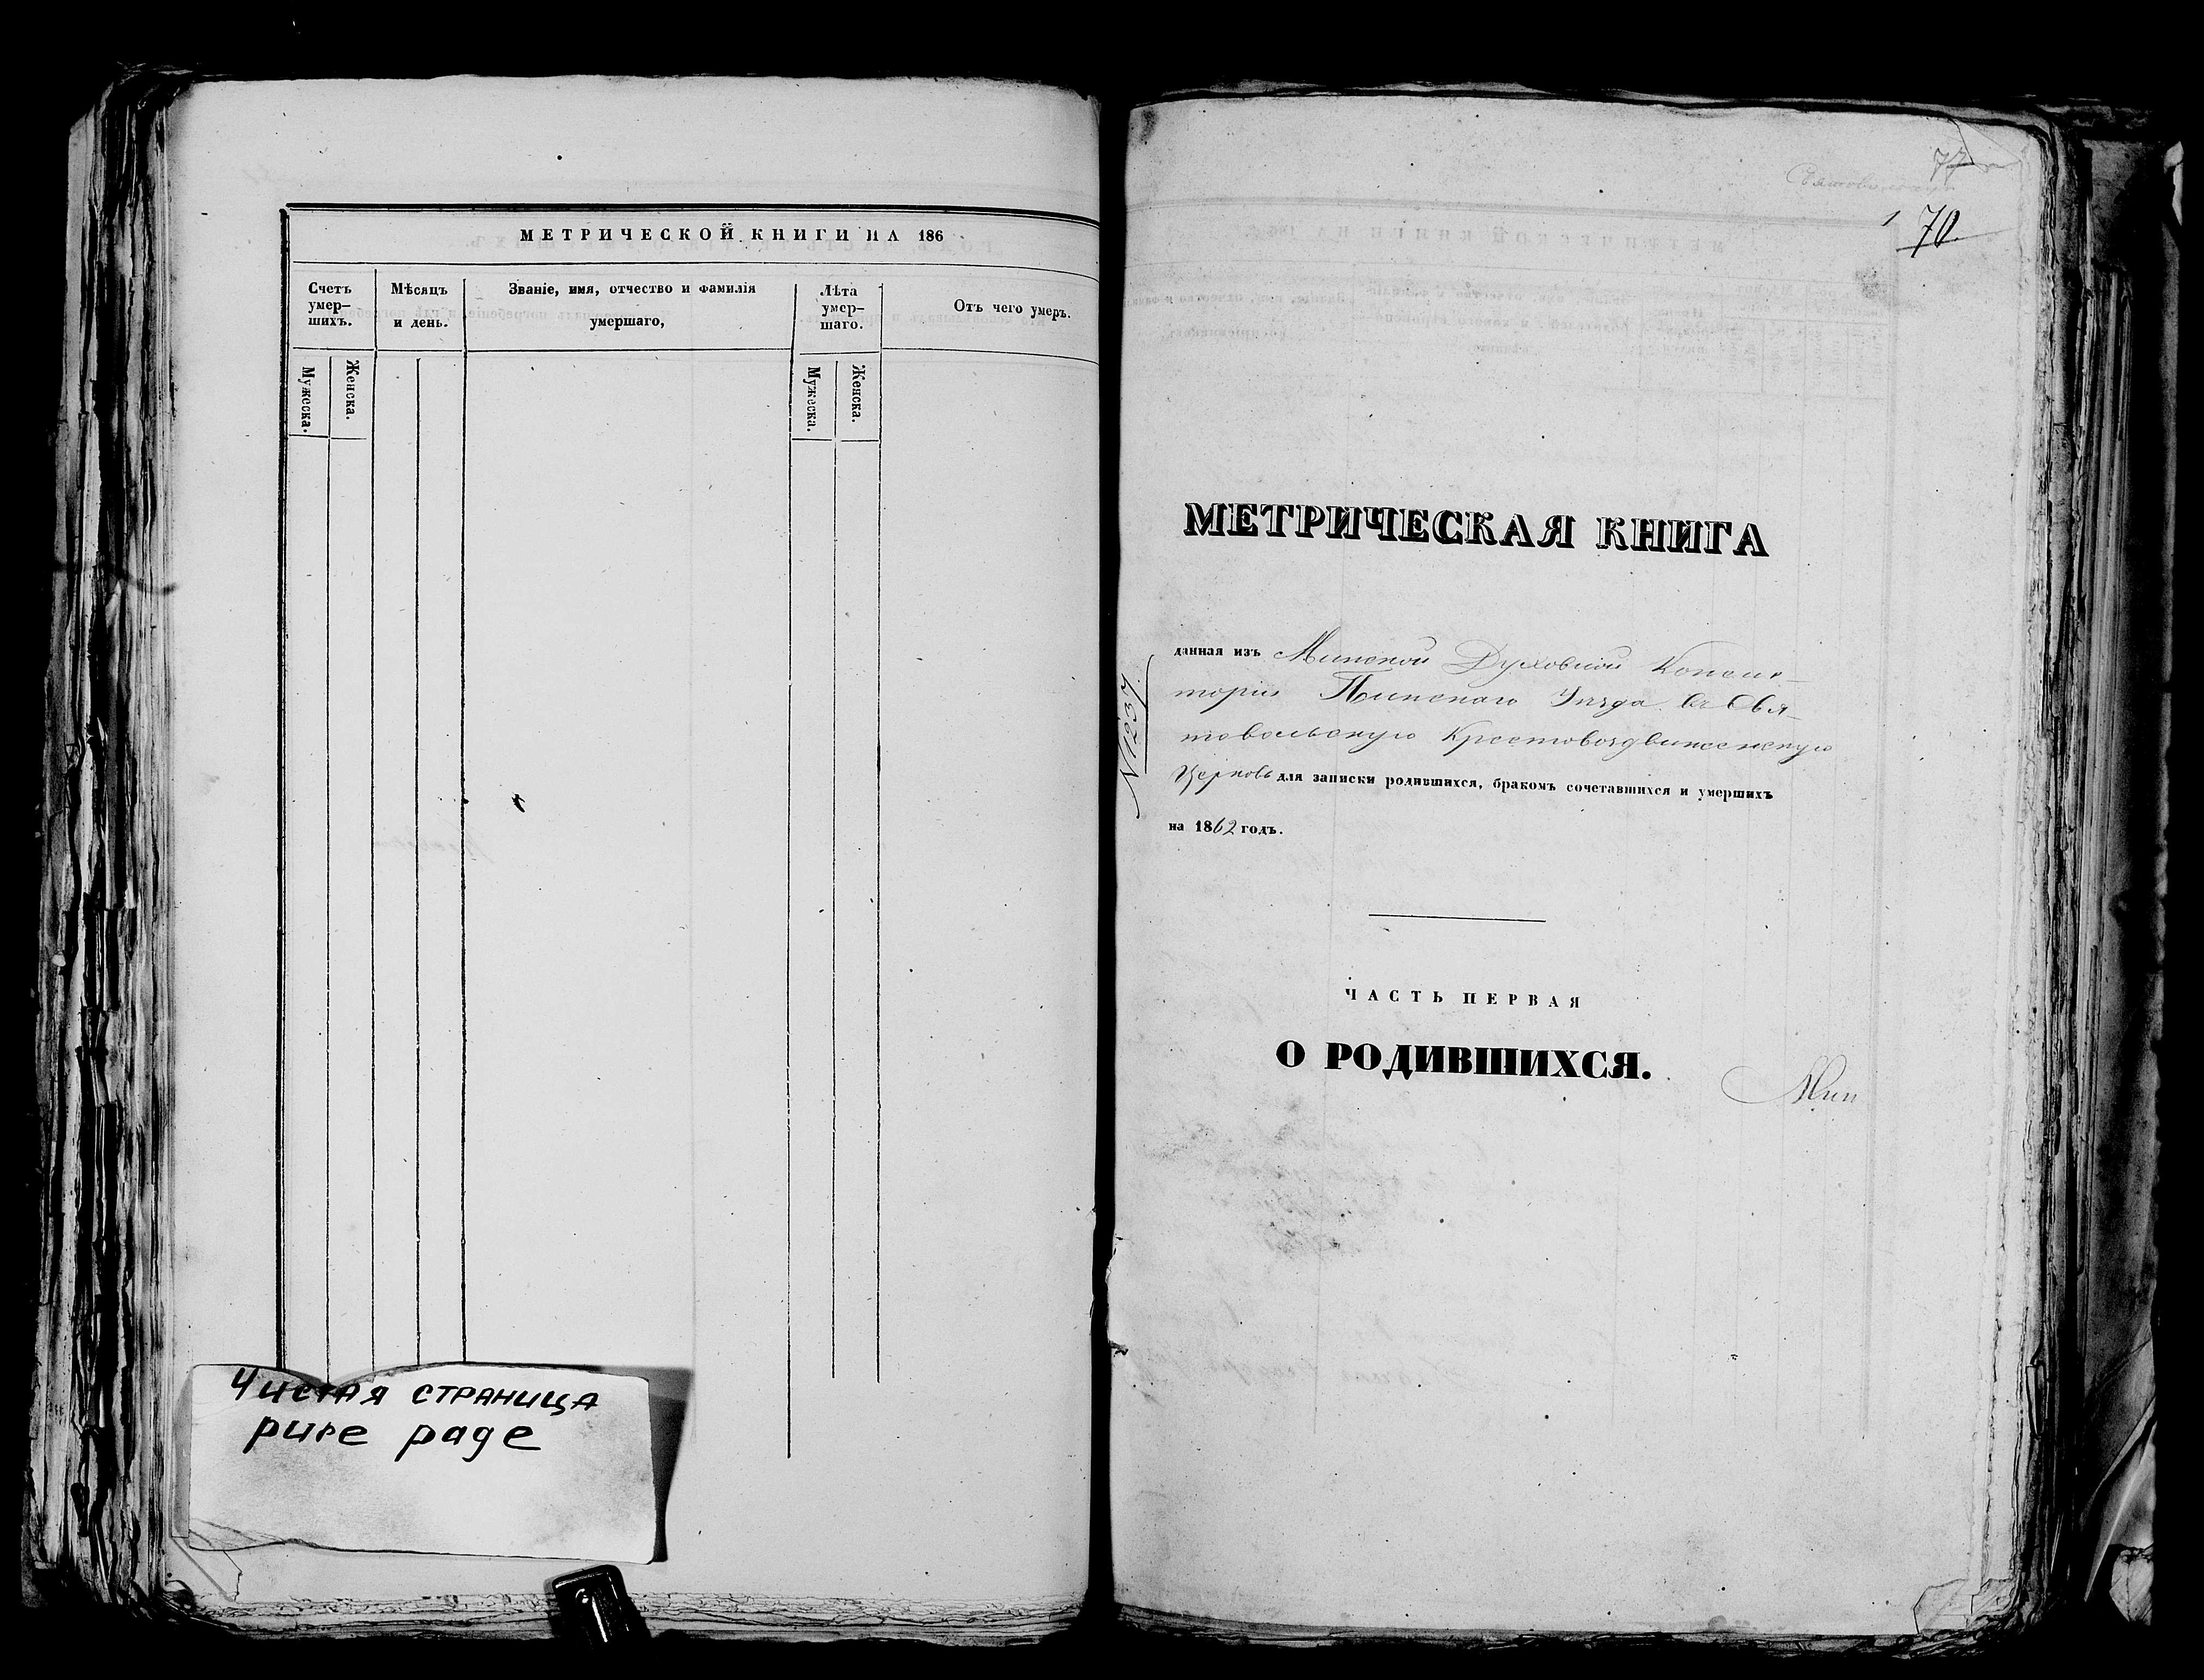 МЕТРИЧЕСКОЙ КНИГИ НА 186
Счетъ умер-шихъ.
Мѣсяцъ и день.
Званіе, имя, отчество и фамилія умершаго,
Лѣта умер-шаго.
Отъ чего умеръ.
Мужеска.
Женска.
Мужеска.
Женска.
Чистая страница
pure page
77
1 70.
МЕТРИЧЕСКАЯ КНИГА
№1237
данная изъ Минской Духовной Консис-
торіи Пинскаго Уѣзда въ Свя-
товольскую Крестовоздвиженскую
Церковь для записки родившихся, бракомъ сочетавшихся и умершихъ
на 1862 годъ.
ЧАСТЬ ПЕРВАЯ
О РОДИВШИХСЯ.
Мин